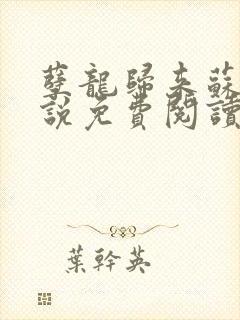 孽龍歸來蘇
說免費閱讀
葉幹英